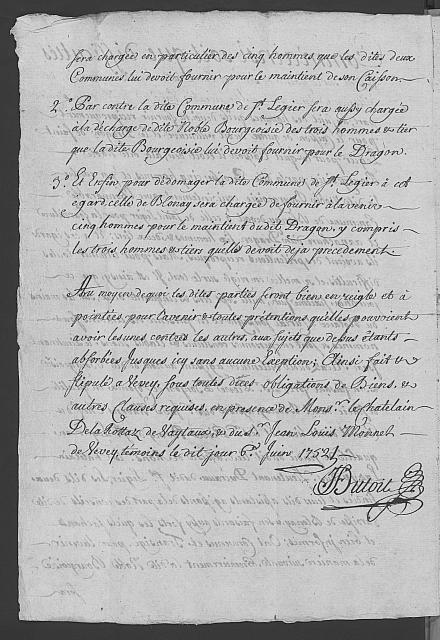 sera chargée en particulier des cinq hommes que les dites deux
Communes lui devoit fournir pour le maintient de son Caisson.
2.° Par contre la dite Commune de S.t Legier sera aussy chargée
a la décharge de dite Noble Bourgeoisie des trois hommes & tier
que la dite Bourgeoisie lui devoit fournir pour le Dragon.
3.° Et Enfin pour dédomager la dite Commune de S.t Legier à cet
egard, celle de Blonay sera chargée de fournir à la venir
cinq hommes pour le maintient du dit Dragon, y compris
les trois hommes & tier qu'elle devoit deja précedement.
Au moyen de quoi les dites parties seront bien en reigle et à
pointées, pour l'avenir & toutes prétentions qu'elles pouvoient
avoir les unes contres les autres, au sujet que dessus étants
absorbées jusques icy sans aucune Exeption; Ainsi fait &
stipulé a Vevey, sous toutes düces obligations de Biens, &
autres Clauses requises, en presence de Mons.r le Chatelain
De la Rottaz de Vaytaux, & du S.r Jean Louis Monnet
de Vevey, témoins le dit jour 6.e Juin 1752
Dutoit